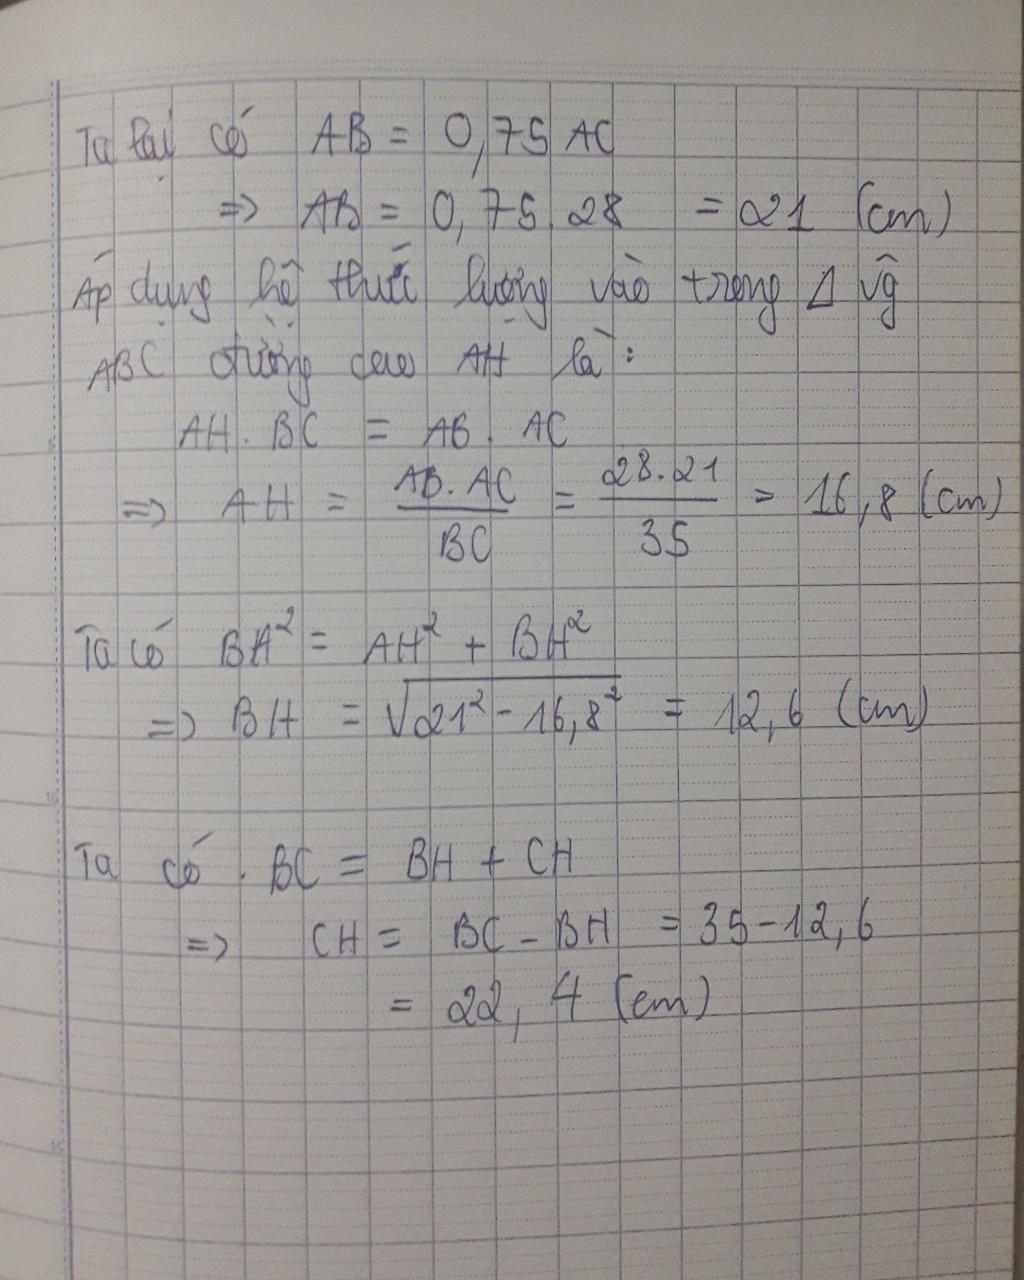 Ta lại có AB = 0,75 AC
=> AB = 0,75.28 = 21 (cm)
Áp dụng hệ thức lượng vào trong Δ vg
ABC đường cao AH là:
AH. BC = AB. AC
=> AH = AB.AC / BC = 28.21 / 35 = 16,8 (cm)
Ta có BA² = AH² + BH²
=> BH = √21² - 16,8² = 12,6 (cm)
Ta có. BC = BH + CH
=> CH = BC - BH = 35-12,6
= 22,4 (cm)